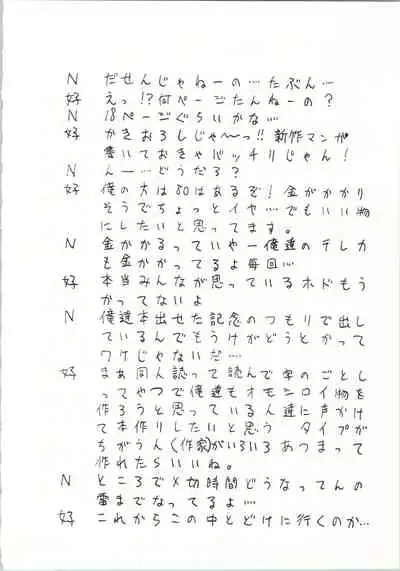 N だせんじゃねーの…たぶん…
好 えっ!?何ページたんねーの?
N 18ページぐらいかな…
好 かきおろしじゃ〜っ!!新作マンガ
書いておきゃバッチリじゃん!
N んー…どうだろ?
好 俺の方は50はあるぞ!金がかかり
そうでちょっとイヤ…でもいい物
にしたいと思ってます。
N 金かかるっていや一俺達のテレカ
も金かかってるよ毎回…
好 本当みんなが思っているホドもう
かってないよ
N 俺達本出せた記念のつもりで出し
ているんでもうけがどうとかって
ワけじゃないだ…
好 まぁ同人誌って読んで字のごとし
ってやつで俺達もオモシロイ物を
作ろうと思っている人達に声かけ
て本作りしたいと思う タイプが
ちがうん(作家)がいろいろあつまって
作れたらいいね。
N ところで〆切時間どうなってんの
雷までなってるよ…
好 これからこの中とどけに行くのか…